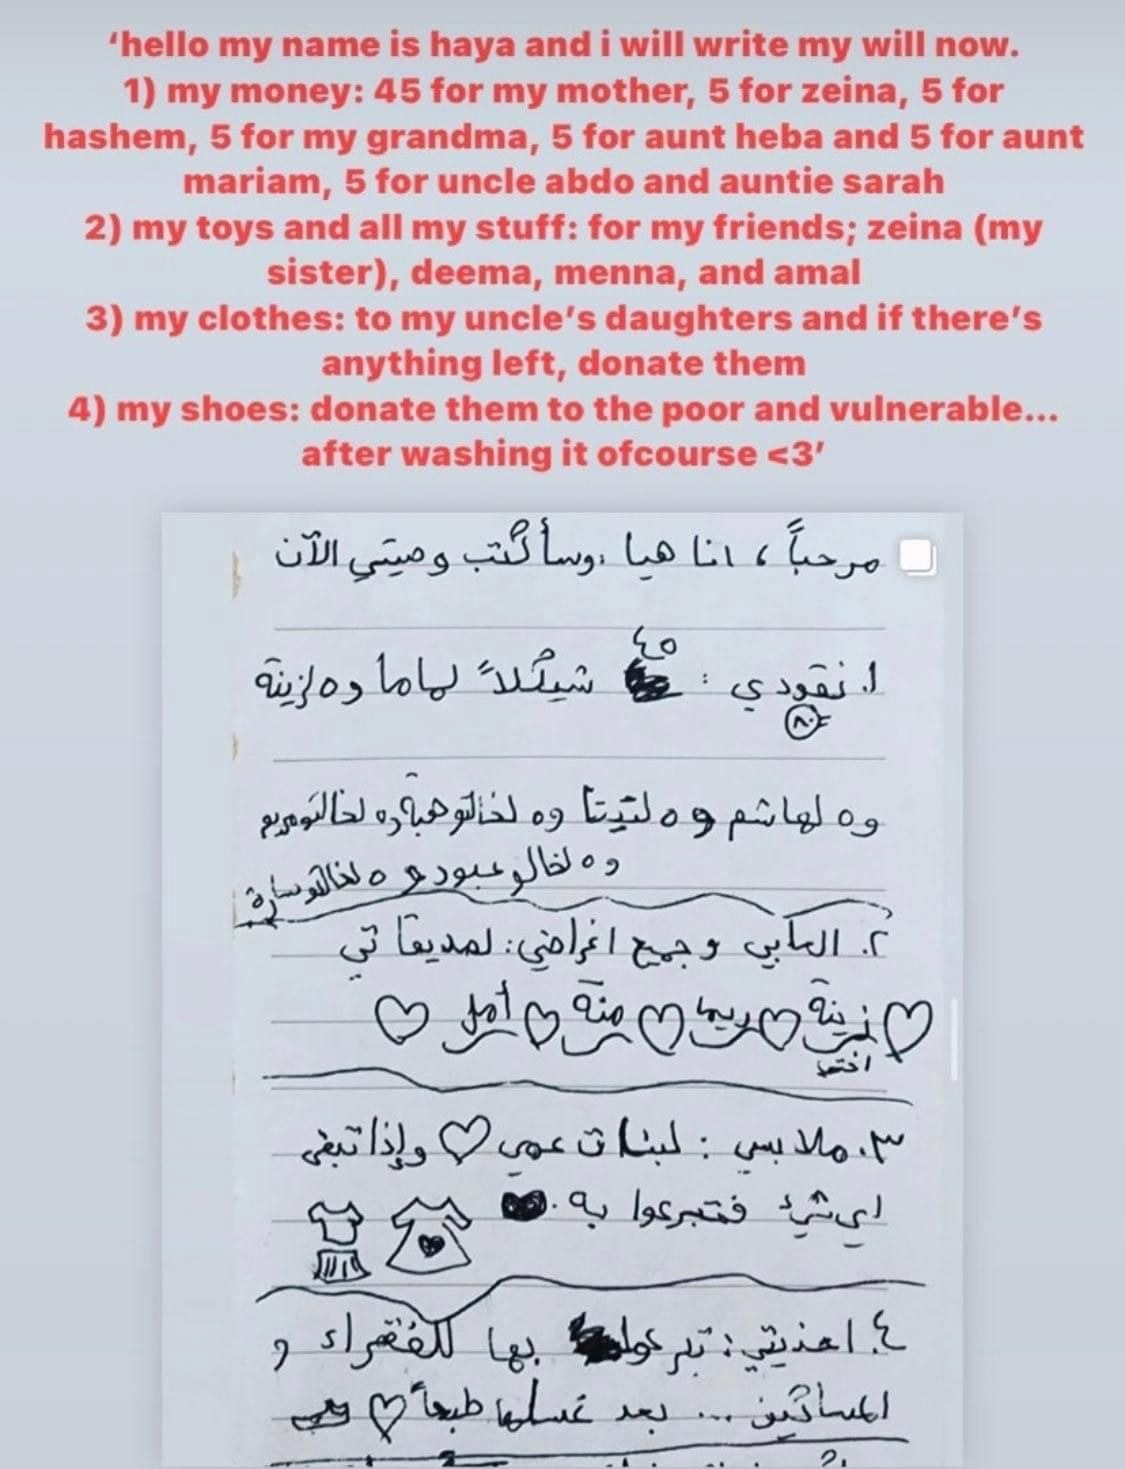 ‘hello my name is haya and i will write my will now.
1) my money: 45 for my mother, 5 for zeina, 5 for
hashem, 5 for my grandma, 5 for aunt heba and 5 for aunt
mariam, 5 for uncle abdo and auntie sarah
2) my toys and all my stuff: for my friends; zeina (my
sister), deema, menna, and amal
3) my clothes: to my uncle’s daughters and if there’s
anything left, donate them
4) my shoes: donate them to the poor and vulnerable...
after washing it ofcourse <3’
مرحباً، انا هيا، وسأكتب وصيتي الآن
٤٥
١. نقودي : شيكلاً لماما و ٥ لزينة
٨٠
و ٥ لهاشم و ٥ لتيتا و ٥ لخالتو هبة و ٥ لخالتو مريم
و ٥ لخالو عبود و ٥ لخالتو سارة
٢. العابي وجميع اغراضي: لصديقاتي
♡ زينة ♡ ريما ♡ منة ♡ أمل ♡
اختي
٣. ملابسي : لبنات عمي ♡ وإذا تبقى
اي شيء فتبرعوا به.
٤. احذيتي: تبرعوا بها للفقراء و
المساكين ... بعد غسلها طبعاً ♡